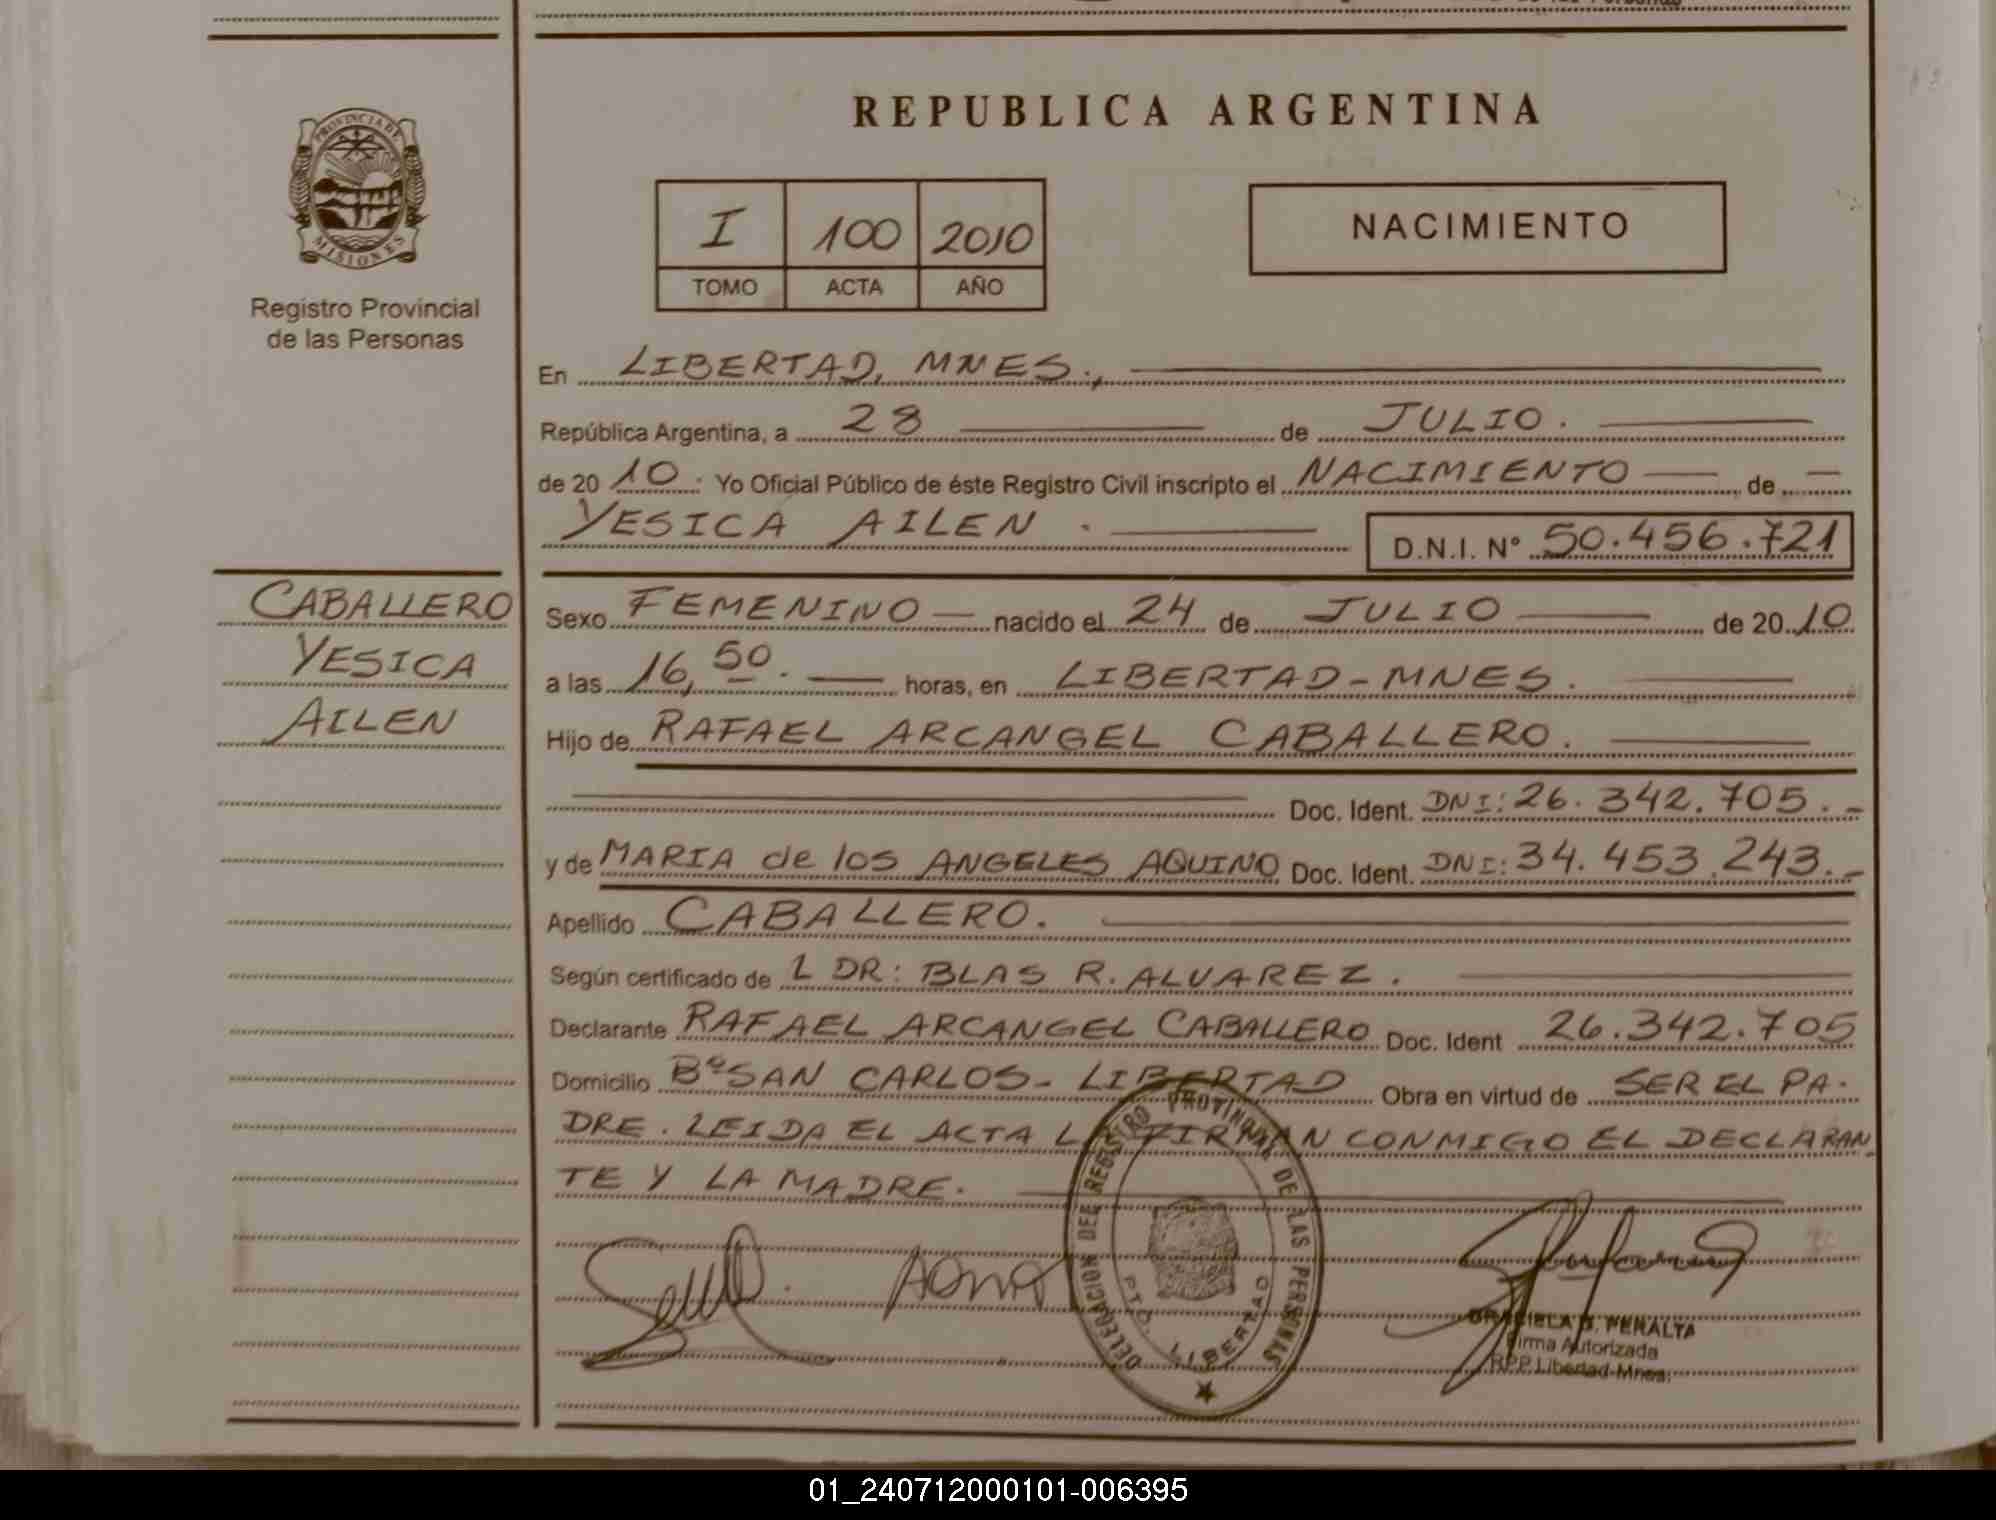 REPUBLICA ARGENTINA
PROVINCIA DE
MISIONES
Registro Provincial
de las Personas
I 100 2010
TOMO ACTA AÑO
NACIMIENTO
En LIBERTAD, MNES.,
República Argentina, a 28 de JULIO.
de 20 10. Yo Oficial Público de éste Registro Civil inscripto el NACIMIENTO de
YESICA AILEN. D.N.I. Nº 50.456.721
CABALLERO
YESICA
AILEN
Sexo FEMENINO nacido el 24 de JULIO de 20 10
a las 16,50. horas, en LIBERTAD-MNES.
Hijo de RAFAEL ARCANGEL CABALLERO.
Doc. Ident. DNI: 26.342.705.-
y de MARIA de los ANGELES AQUINO Doc. Ident. DNI: 34.453.243.-
Apellido CABALLERO.
Según certificado de L DR: BLAS R. ALVAREZ.
Declarante RAFAEL ARCANGEL CABALLERO Doc. Ident 26.342.705
Domicilio Bº SAN CARLOS- LIBERTAD Obra en virtud de SER EL PA-
DRE. LEIDA EL ACTA LA FIRMAN CONMIGO EL DECLARAN
TE Y LA MADRE.
DELEGACION DEL REGISTRO PROVINCIAL DE LAS PERSONAS
PTO. LIBERTAD
GRACIELA B. PERALTA
Firma Autorizada
RPP Libertad-Mnes.
01_240712000101-006395